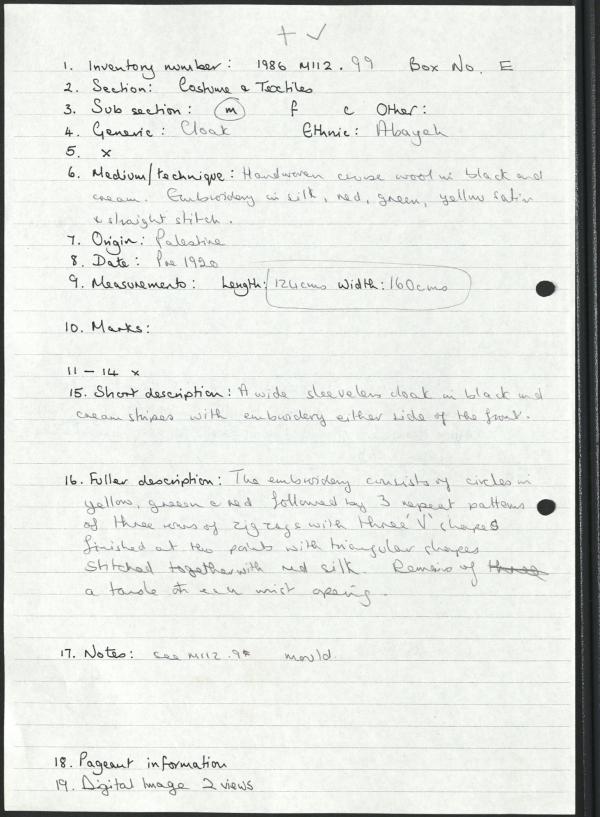 + ✓
1. Inventory number: 1986 M112.99 Box No. E
2. Section: Costume & Textiles
3. Sub section: m f c Other:
4. Generic: Cloak Ethnic: Abayah
5. x
6. Medium/technique: Handwoven course wool in black and
cream. Embroidery in silk, red, green, yellow satin
& straight stitch.
7. Origin: Palestine
8. Date: Pre 1920
9. Measurements: Length: 124cms Width: 160cms
10. Marks:
11 - 14 x
15. Short description: A wide sleeveless cloak in black and
cream stripes with embroidery either side of the front.
16. Fuller description: The embroidery consists of circles in
yellow, green & red followed by 3 repeat patterns
of three rows of zig zags with three 'V' shapes
finished at the points with triangular shapes
stitched together with red silk. Remains of three
a tassle at each wrist opening.
17. Notes: see M112. mould
18. Pageant information
19. Digital Image 2 views